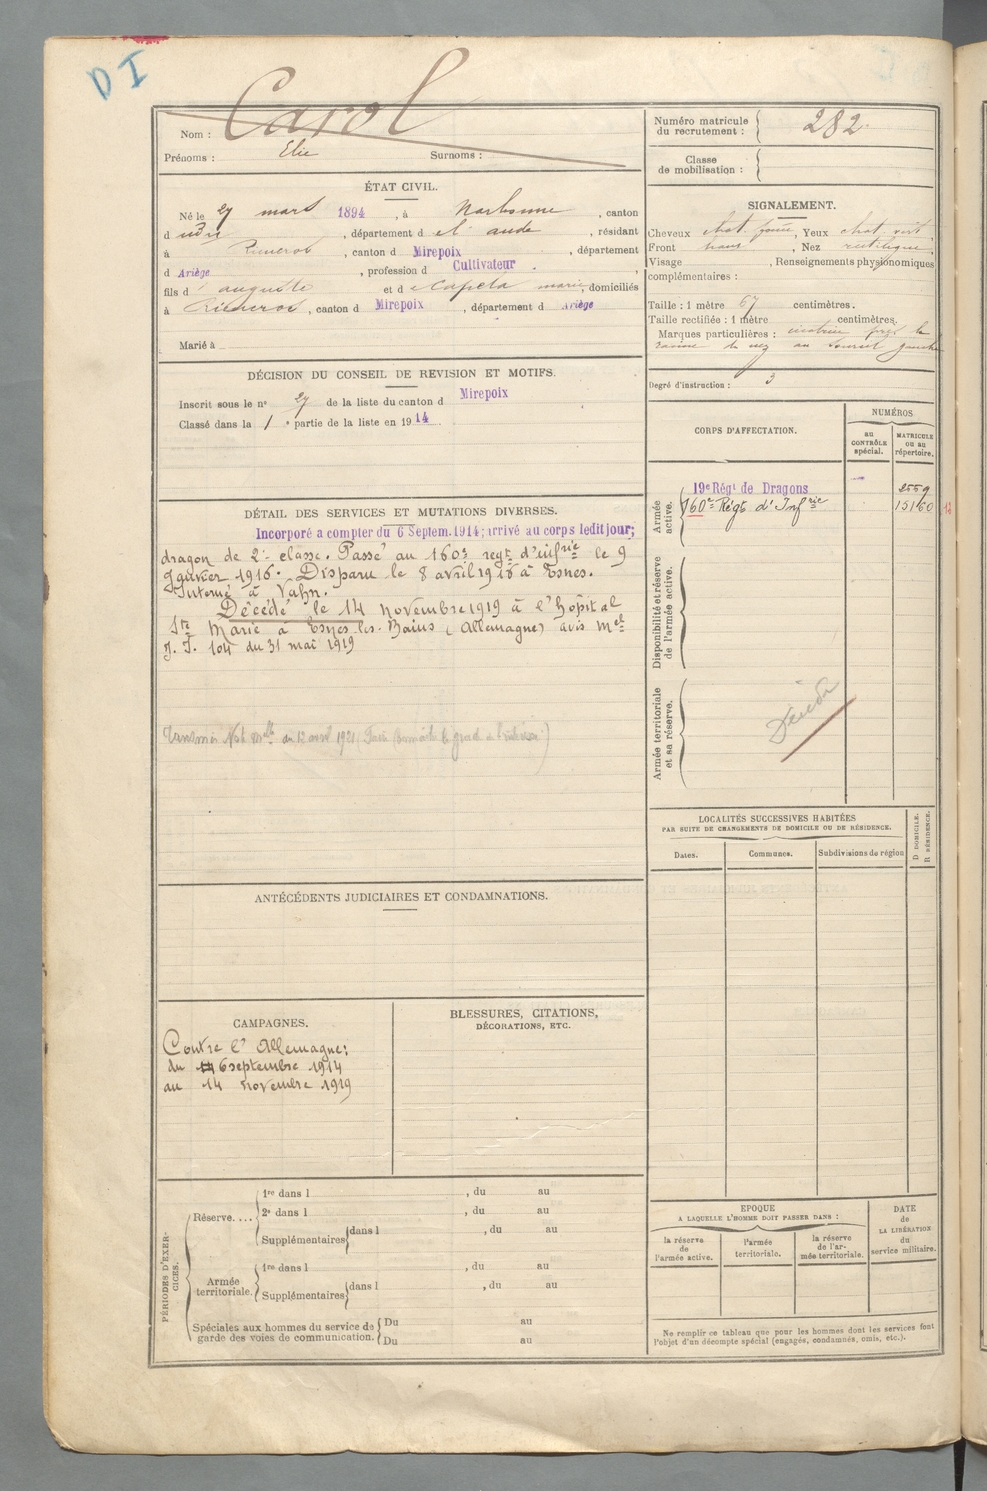 DI
Nom : Carol
Prénoms : Elie Surnoms :
Numéro matricule du recrutement : 282
Classe de mobilisation :
ÉTAT CIVIL.
Né le 27 mars 1894, à Narbonne, canton
d udit, département d el' aude, résidant
à, canton d Mirepoix, département
d Ariège, profession d Cultivateur.
fils d' auguste et d e Capela marie, domiciliés
à, canton d Mirepoix, département d Ariège
Marié à
SIGNALEMENT.
Cheveux chat. foncé, Yeux chat. vert,
Front haut, Nez rectiligne,
Visage, Renseignements physionomiques
complémentaires :
Taille : 1 mètre 67 centimètres.
Taille rectifiée : 1 mètre centimètres.
Marques particulières : cicatrice près la
racine du nez au sourcil gauche
Degré d'instruction : 3
DÉCISION DU CONSEIL DE REVISION ET MOTIFS.
Inscrit sous le n° 27 de la liste du canton d Mirepoix
Classé dans la 1e partie de la liste en 1914
CORPS D'AFFECTATION.
NUMÉROS
au CONTRÔLE spécial.
MATRICULE ou au répertoire.
Armée active.
19e Régt de Dragons 2559
160e Régt d'Infrie 15160
Disponibilité et réserve de l'armée active.
Armée territoriale et sa réserve.
Décédé
DÉTAIL DES SERVICES ET MUTATIONS DIVERSES.
Incorporé a compter du 6 Septem. 1914; arrivé au corps ledit jour;
dragon de 2e classe. Passé au 160e regt d'infrie le 9
Janvier 1916. Disparu le 8 avril 1916 à Esnes.
Interné à Vahn.
Décédé le 14 novembre 1919 à l'hôpital
Ste Marie à Esnes les-Bains (Allemagne) avis Mel
J. J. 104 du 31 mai 1919
du 12 avril 1921
LOCALITÉS SUCCESSIVES HABITÉES
PAR SUITE DE CHANGEMENTS DE DOMICILE OU DE RÉSIDENCE.
Dates. Communes. Subdivisions de région
D DOMICILE.
R RÉSIDENCE.
ANTÉCÉDENTS JUDICIAIRES ET CONDAMNATIONS.
CAMPAGNES.
Contre l'Allemagne:
du 6 septembre 1914
au 14 novembre 1919
BLESSURES, CITATIONS,
DÉCORATIONS, ETC.
PÉRIODES D'EXERCICES.
Réserve....
1re dans l , du au
2e dans l , du au
Supplémentaires dans l , du au
Armée territoriale.
1re dans l , du au
Supplémentaires dans l , du au
Spéciales aux hommes du service de garde des voies de communication.
Du au
Du au
EPOQUE
A LAQUELLE L'HOMME DOIT PASSER DANS :
la réserve de l'armée active.
l'armée territoriale.
la réserve de l'armée territoriale.
DATE de LA LIBÉRATION du service militaire.
Ne remplir ce tableau que pour les hommes dont les services font
l'objet d'un décompte spécial (engagés, condamnés, omis, etc.).